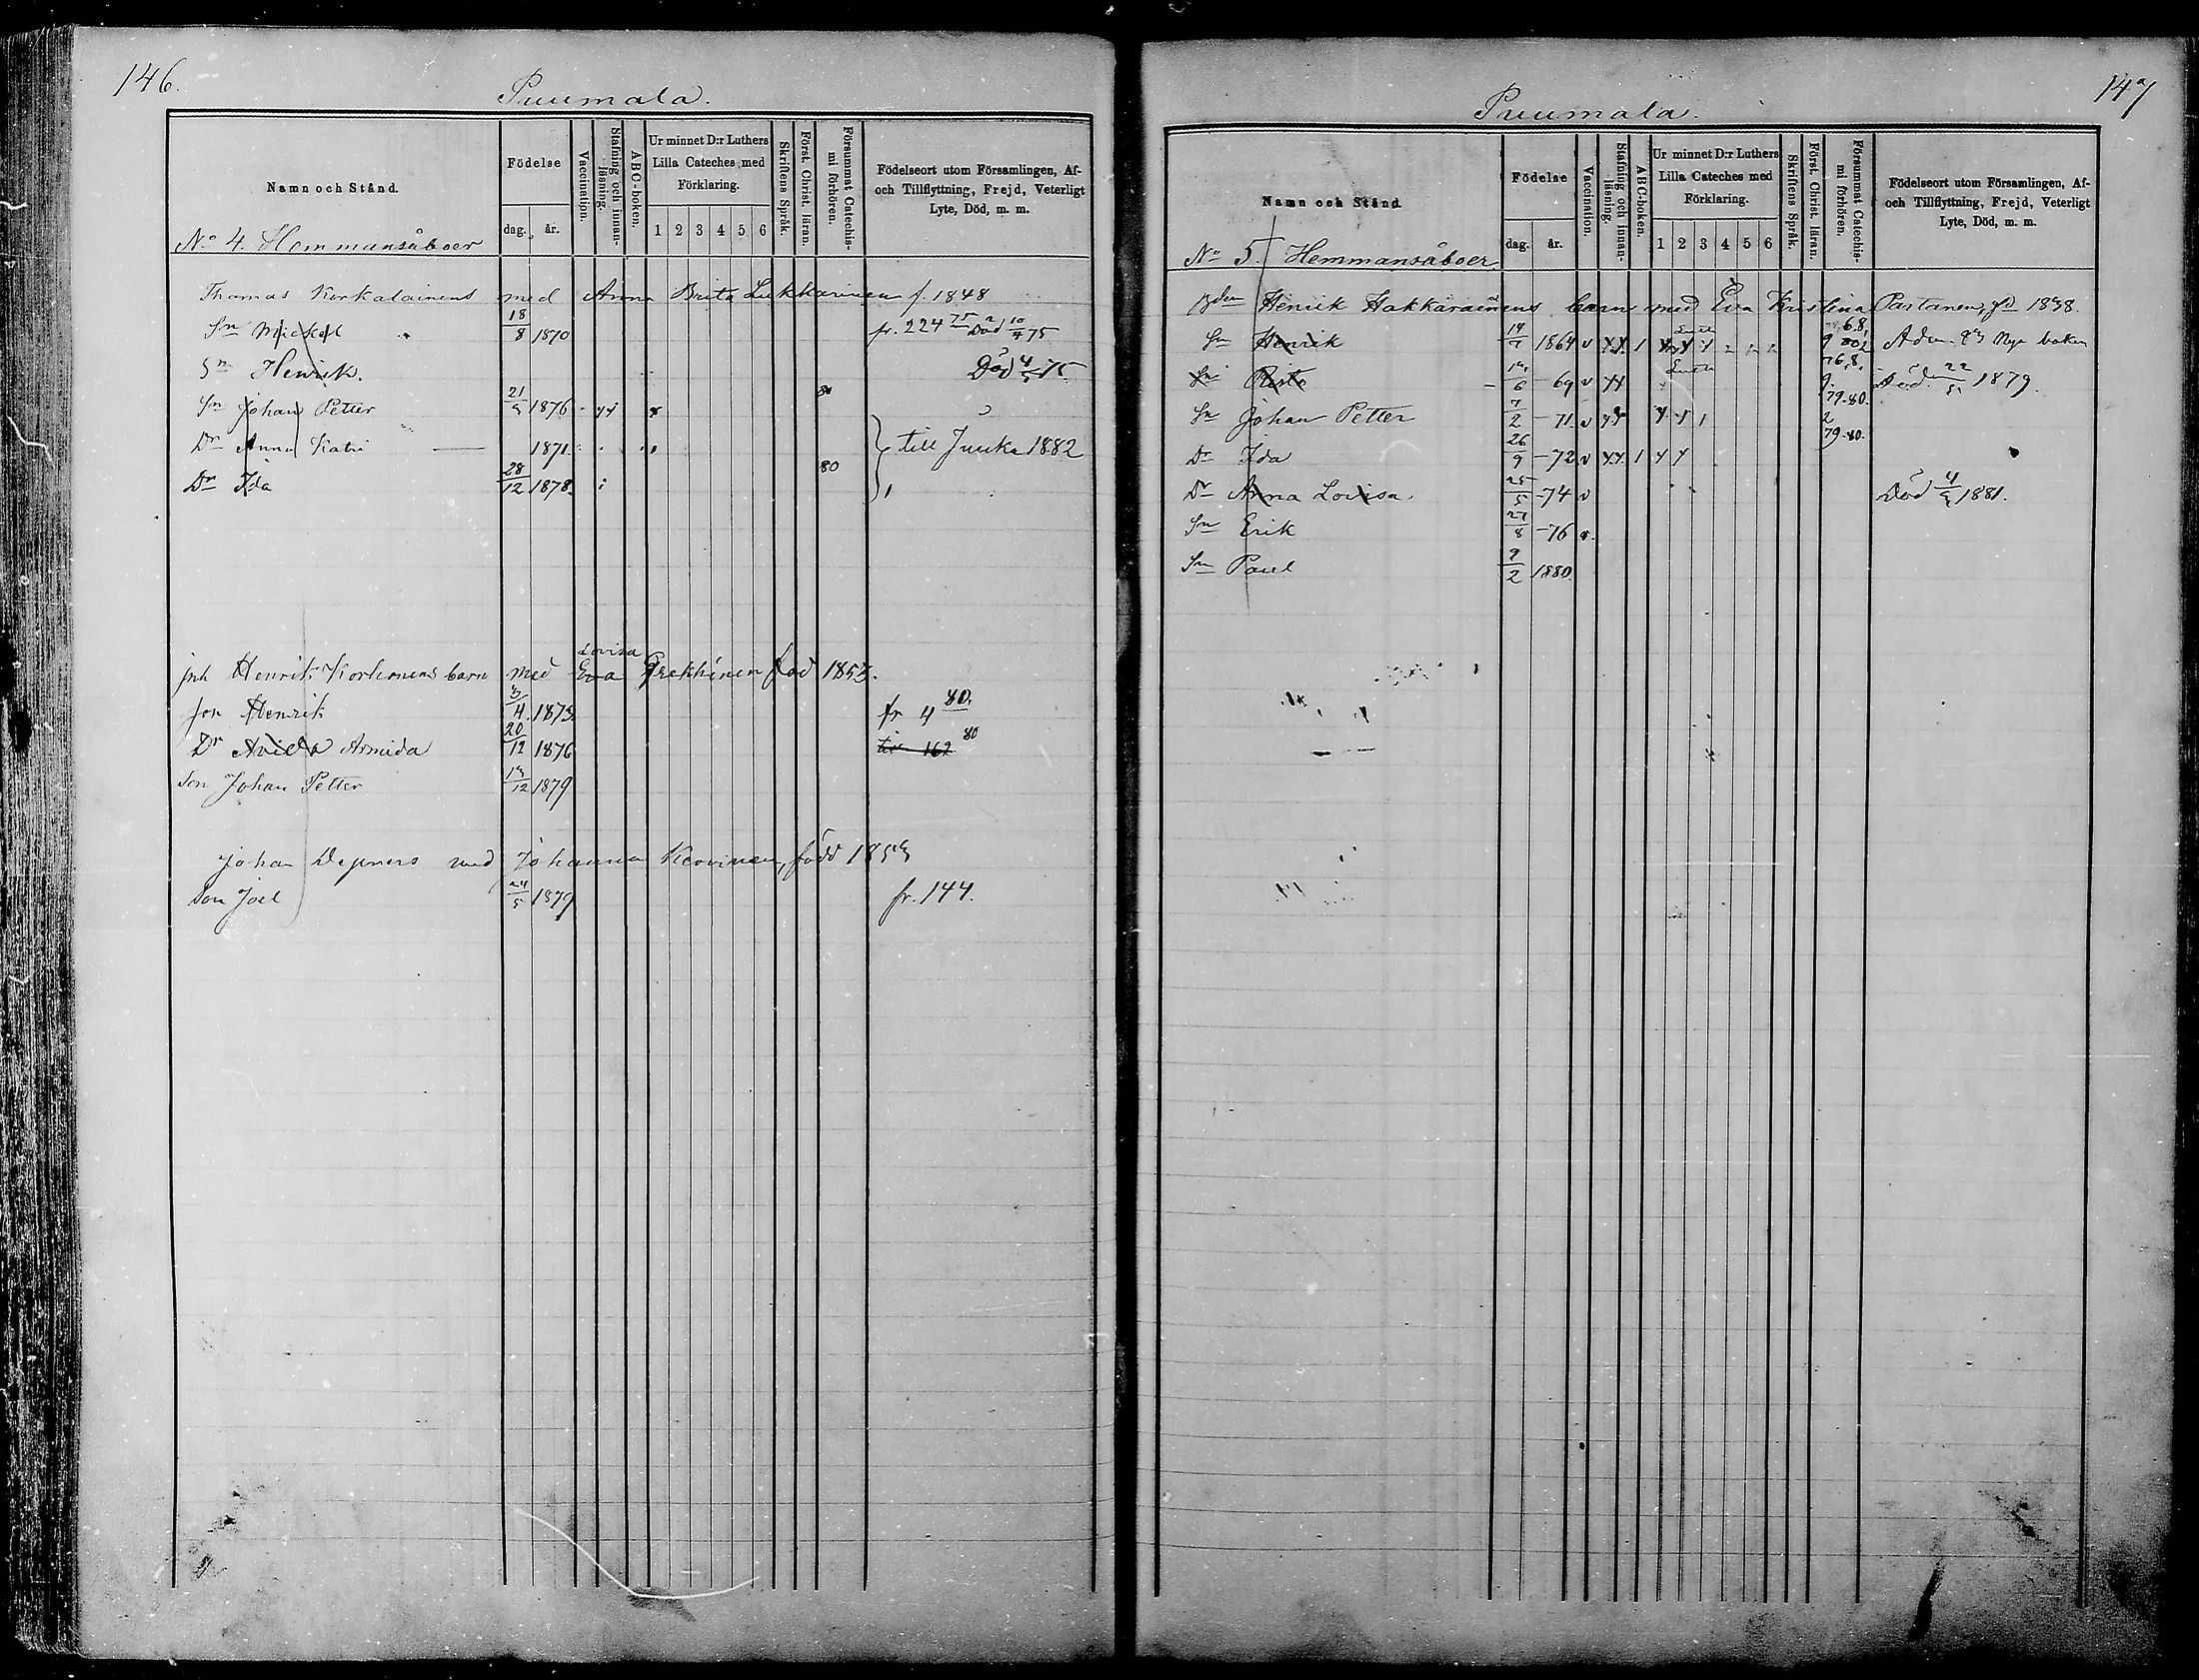 146.
Puumala.
Namn och Stånd.
Födelse
dag. år.
Vaccination.
Stafning och innanläsning.
ABC-boken.
Ur minnet D:r Luthers Lilla Cateches med Förklaring.
1 2 3 4 5 6
Skriftens Språk.
Först. Christ. läran.
Försummat Catechismi förhören.
Födelseort utom Församlingen, Af- och Tillflyttning, Frejd, Veterligt Lyte, Död, m. m.
No 4. Hemmansåboer
Thomas Korkalainens med Anna Brita Lukkarinen f. 1848
Sn Mickel 18/8 1870 fr. 224 75 Död 10/4 75
Sn Henrik. Död 75
Sn Johan Petter 21/9 1876
Dr Anna Katri 1871 till Juuka 1882
Dr Ida 28/12 1878 80
Henrik Korhonens barn med Eva Lovisa född 1853.
Son Henrik 3/4 1873 fr 4 80.
Dr Avida Armida 20/12 1876 162 80
Son Johan Petter 12 1879
Johan med Johanna född
Son Joel 24/5 1879 fr. 144.
147
Puumala.
Namn och Stånd
Födelse
dag. år.
Vaccination.
Stafning och innanläsning.
ABC-boken.
Ur minnet D:r Luthers Lilla Cateches med Förklaring.
1 2 3 4 5 6
Skriftens Språk.
Först. Christ. läran.
Försummat Catechismi förhören.
Födelseort utom Församlingen, Af- och Tillflyttning, Frejd, Veterligt Lyte, Död, m. m.
No 5. Hemmansåboer
Henrik Hakkarainens barn med Eva Kristina Partanen, 1838.
Sn Henrik 14/7 1864 v 1 Nya boken
Sn Risto 6 69 v Död 22/5 1879.
Sn Johan Petter 7/2 -71 v 79-80.
Dr Ida 26/9 -72 v 1 79-80.
Dr Anna Lovisa. 25/5 -74 v Död 1881.
Sn Erik 27/8 -76
Sn Paul 9/2 1880